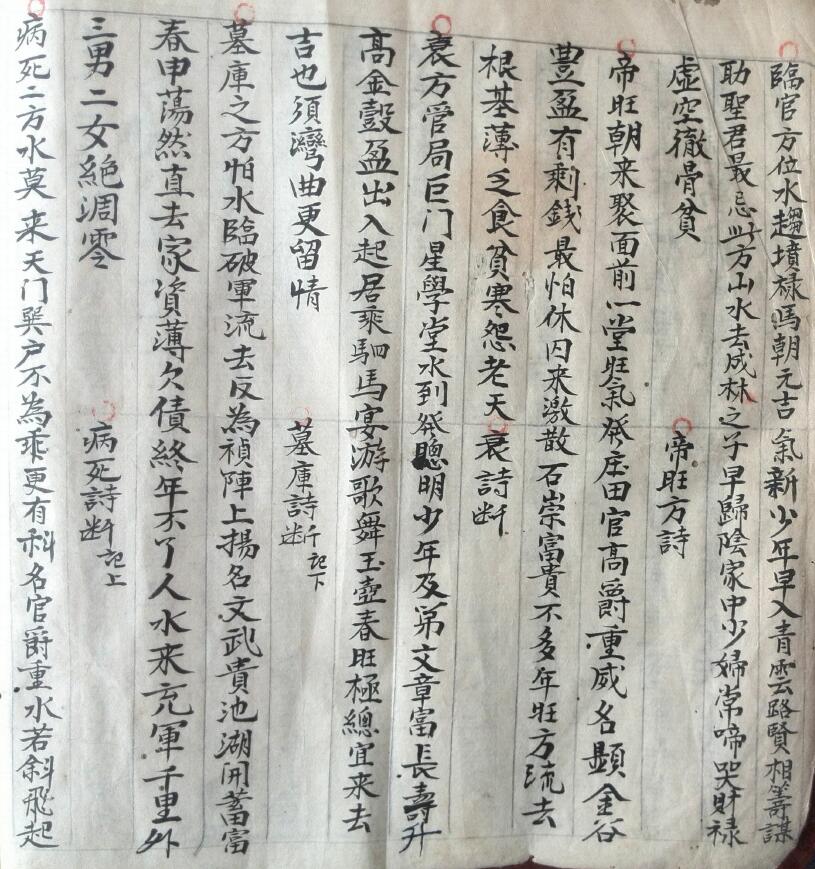 臨官方位水趨墳祿馬朝元吉氣新少年早入青雲路賢相籌謀
助聖君最忌此方山水去成林之子早歸陰家中少婦常啼哭財祿
虛空徹骨貧 帝旺方詩
帝旺朝來聚面前一堂旺氣發庄田官高爵重威名顯金谷
豐盈有剩錢最怕休囚来激散石崇富貴不多年旺方流去
根基薄乏食貧寒怨老天 衰詩断
衰方管局巨门星學堂水到發聰明少年及第文章富長壽升
高金穀盈出入起居乘駟馬宴游歌舞玉壺春旺極總宜來去
吉也須灣曲更留情 墓庫詩断記下
墓庫之方怕水臨破軍流去反為禎陣上揚名文武貴池湖開蓄富
春申蕩然直去家資薄欠債終年不了人水来充軍千里外
三男二女絕凋零 病死詩断記上
病死二方水莫来天门巽户不為乖更有科名官爵重水若斜飛起